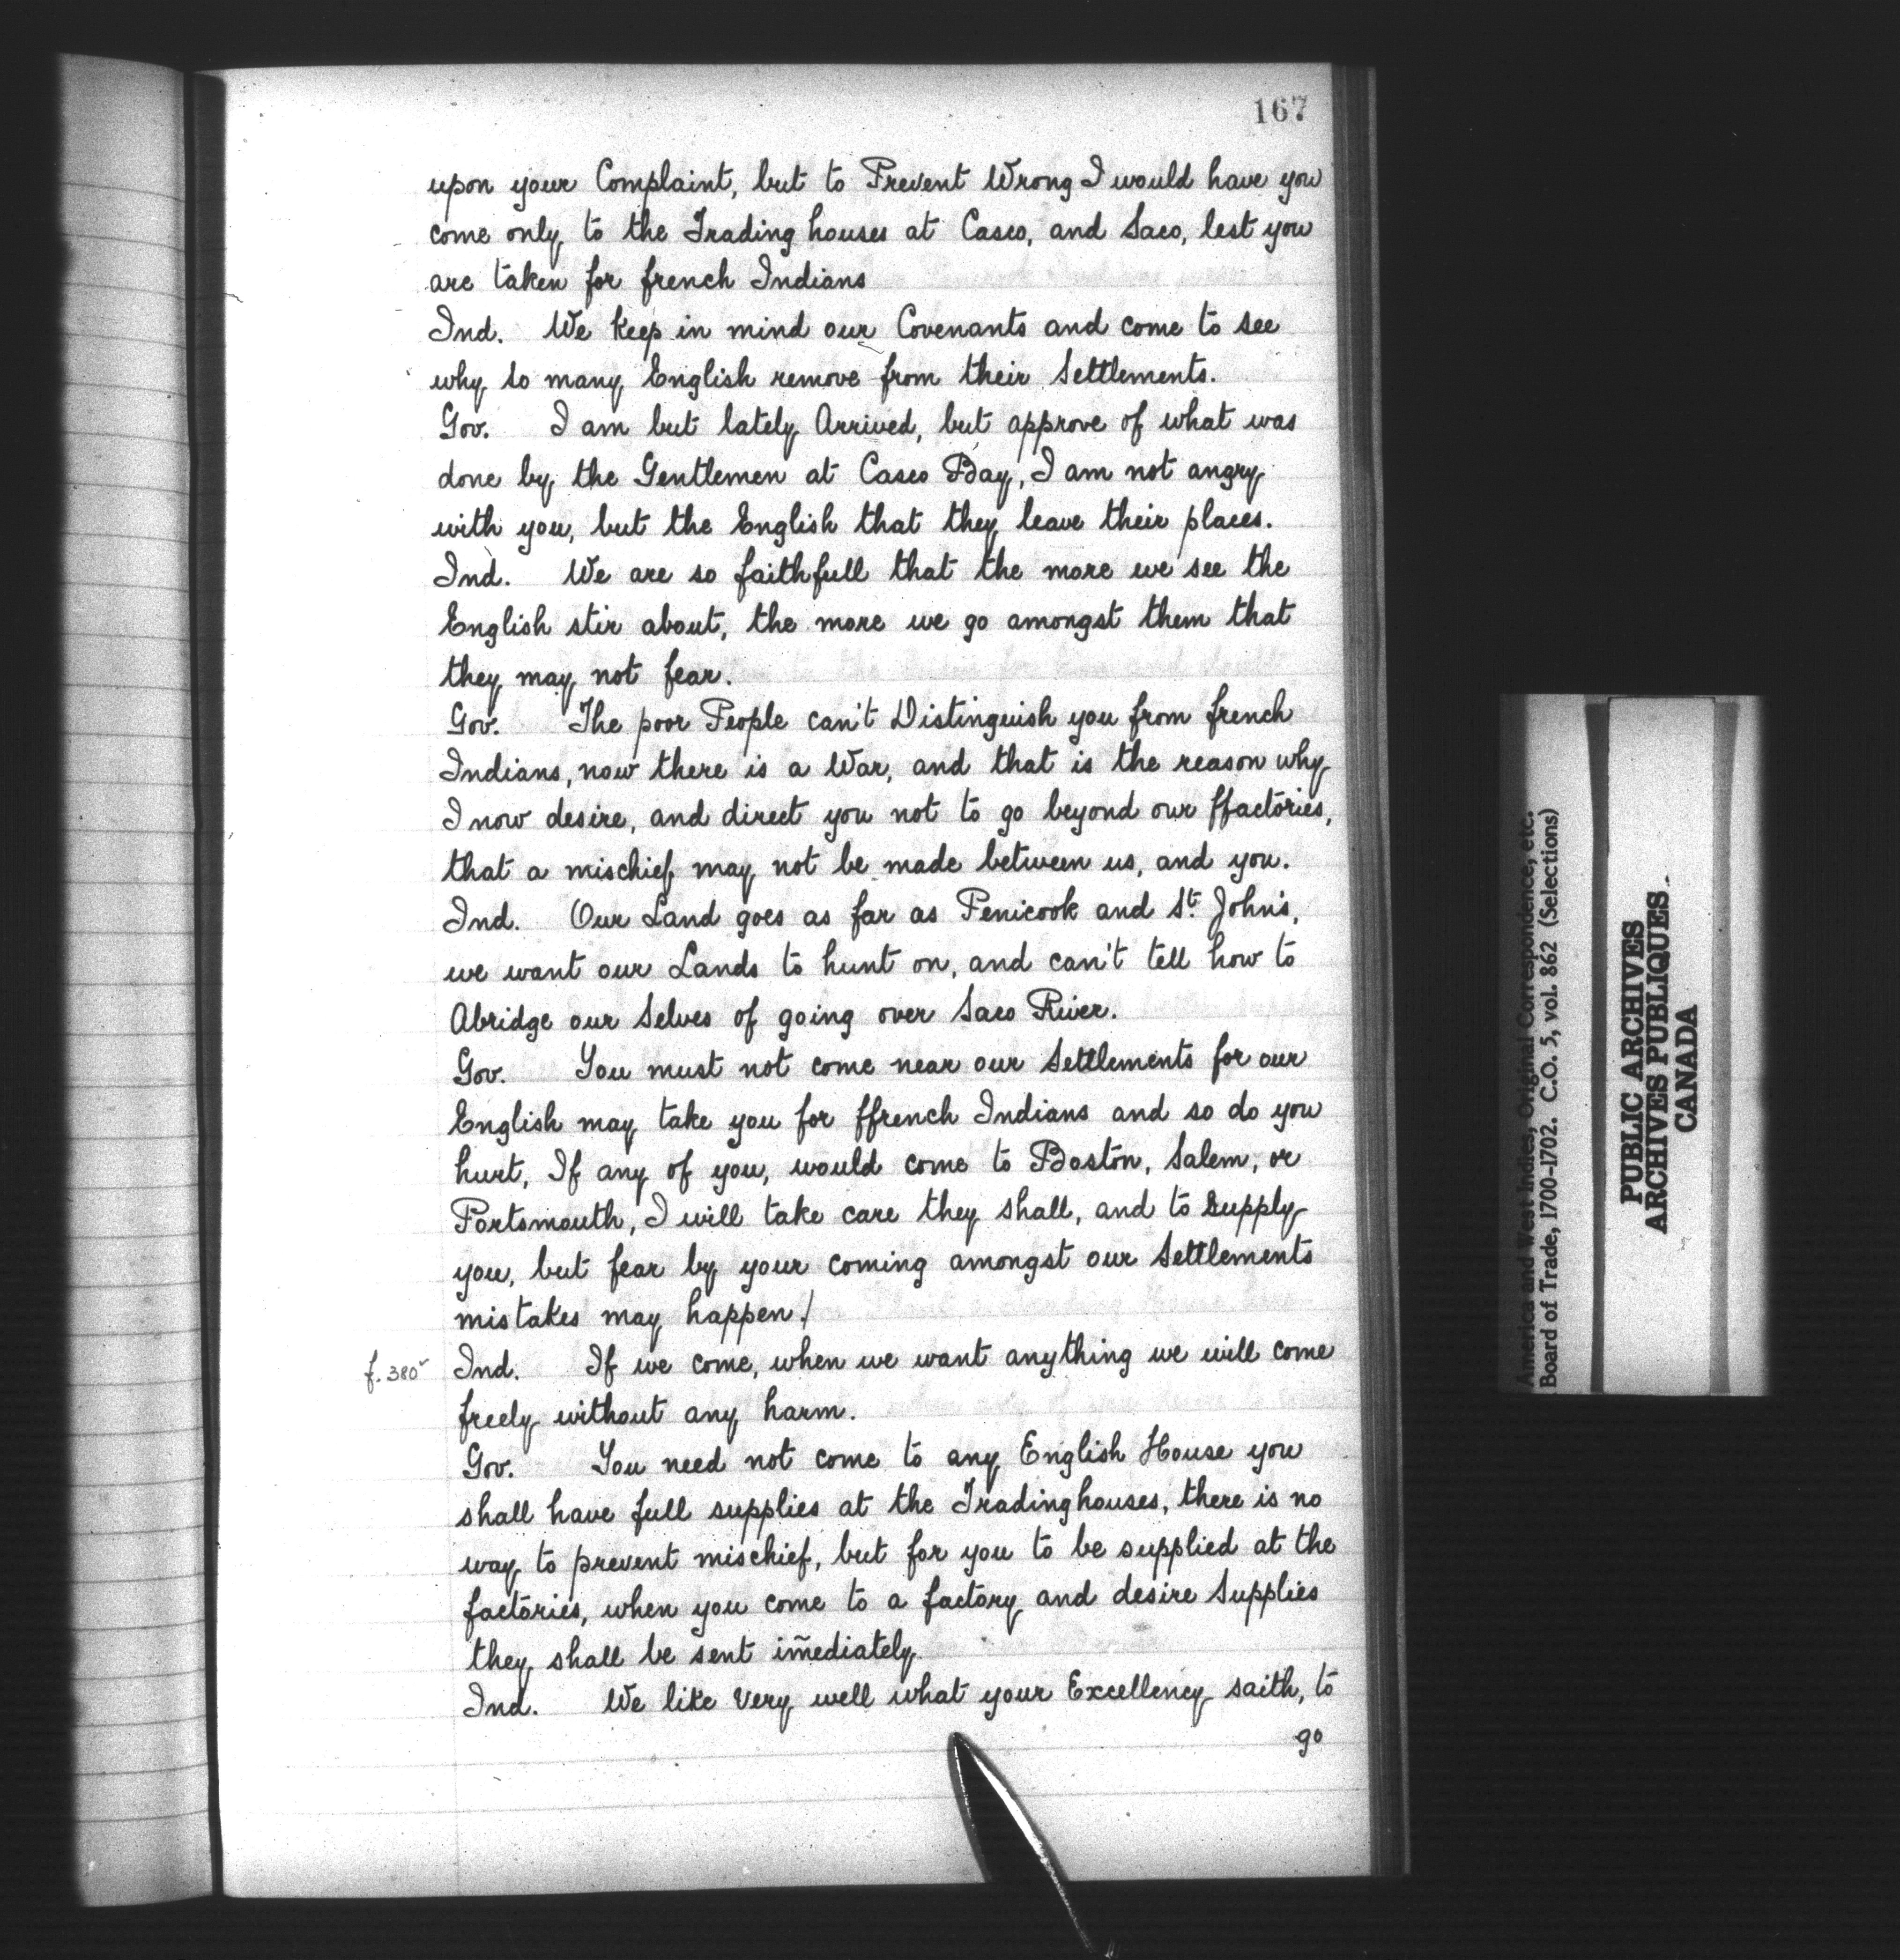 167
upon your Complaint, but to Prevent Wrong I would have you
come only to the Trading houses at Casco, and Saco, lest you
are taken for french Indians
Ind. We keep in mind our Covenants and come to see
why so many English remove from their Settlements.
Gov. I am but lately Arrived, but approve of what was
done by the Gentlemen at Casco Bay, I am not angry
with you, but the English that they leave their places.
Ind. We are so faithfull that the more we see the
English stir about, the more we go amongst them that
they may not fear.
Gov. The poor People can't Distinguish you from french
Indians, now there is a War, and that is the reason why
I now desire, and direct you not to go beyond our ffactories,
that a mischief may not be made between us, and you.
Ind. Our Land goes as far as Penicook and St. John's,
we want our Lands to hunt on, and can't tell how to
Abridge our Selves of going over Saco River.
Gov. You must not come near our Settlements for our
English may take you for ffrench Indians and so do you
hurt, If any of you, would come to Boston, Salem, or
Portsmouth, I will take care they shall, and to Supply
you, but fear by your coming amongst our Settlements
mistakes may happen!
f. 380v Ind. If we come, when we want anything we will come
freely without any harm.
Gov. You need not come to any English House you
shall have full supplies at the Tradinghouses, there is no
way to prevent mischief, but for you to be supplied at the
factories, when you come to a factory and desire Supplies
they shall be sent im̃ediately.
Ind. We like Very well what your Excellency saith, to
go
America and West Indies, Original Correspondence, etc.
Board of Trade, 1700-1702. C.O. 5, vol. 862 (Selections)
PUBLIC ARCHIVES
ARCHIVES PUBLIQUES
CANADA